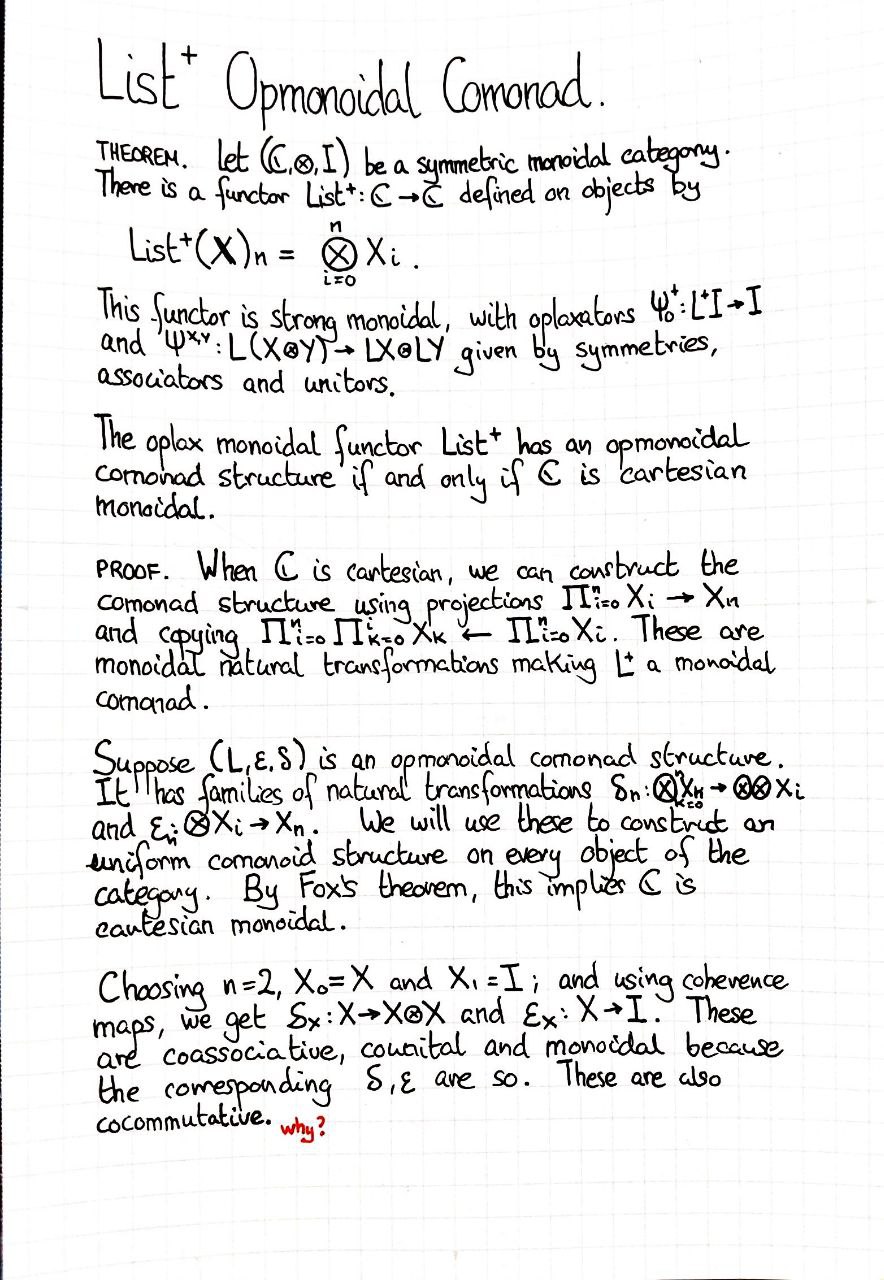 List⁺ Opmonoidal Comonad.
THEOREM. Let (ℂ,⊗,I) be a symmetric monoidal category.
There is a functor List⁺: ℂ → ℂ defined on objects by
List⁺(X)ₙ = ⊗ⁿᵢ₌₀ Xᵢ.
This functor is strong monoidal, with oplaxators Ψ₀⁺: L⁺I → I
and Ψˣ,ʸ: L(X⊗Y) → LX⊗LY given by symmetries,
associators and unitors.
The oplax monoidal functor List⁺ has an opmonoidal
comonad structure if and only if ℂ is cartesian
monoidal.
PROOF. When ℂ is cartesian, we can construct the
comonad structure using projections Πⁿᵢ₌₀ Xᵢ → Xₙ
and copying Πⁿᵢ₌₀ Πⁱₖ₌₀ Xₖ ← Πⁿᵢ₌₀ Xᵢ. These are
monoidal natural transformations making L⁺ a monoidal
comonad.
Suppose (L,ε,δ) is an opmonoidal comonad structure.
It has families of natural transformations δₙ: ⊗ⁿₖ₌₀ Xₖ → ⊗⊗ Xᵢ
and εₙ: ⊗Xᵢ → Xₙ. We will use these to construct an
uniform comonoid structure on every object of the
category. By Fox's theorem, this implies ℂ is
cartesian monoidal.
Choosing n=2, X₀=X and X₁=I; and using coherence
maps, we get δₓ: X→X⊗X and εₓ: X→I. These
are coassociative, counital and monoidal because
the corresponding δ,ε are so. These are also
cocommutative. why?